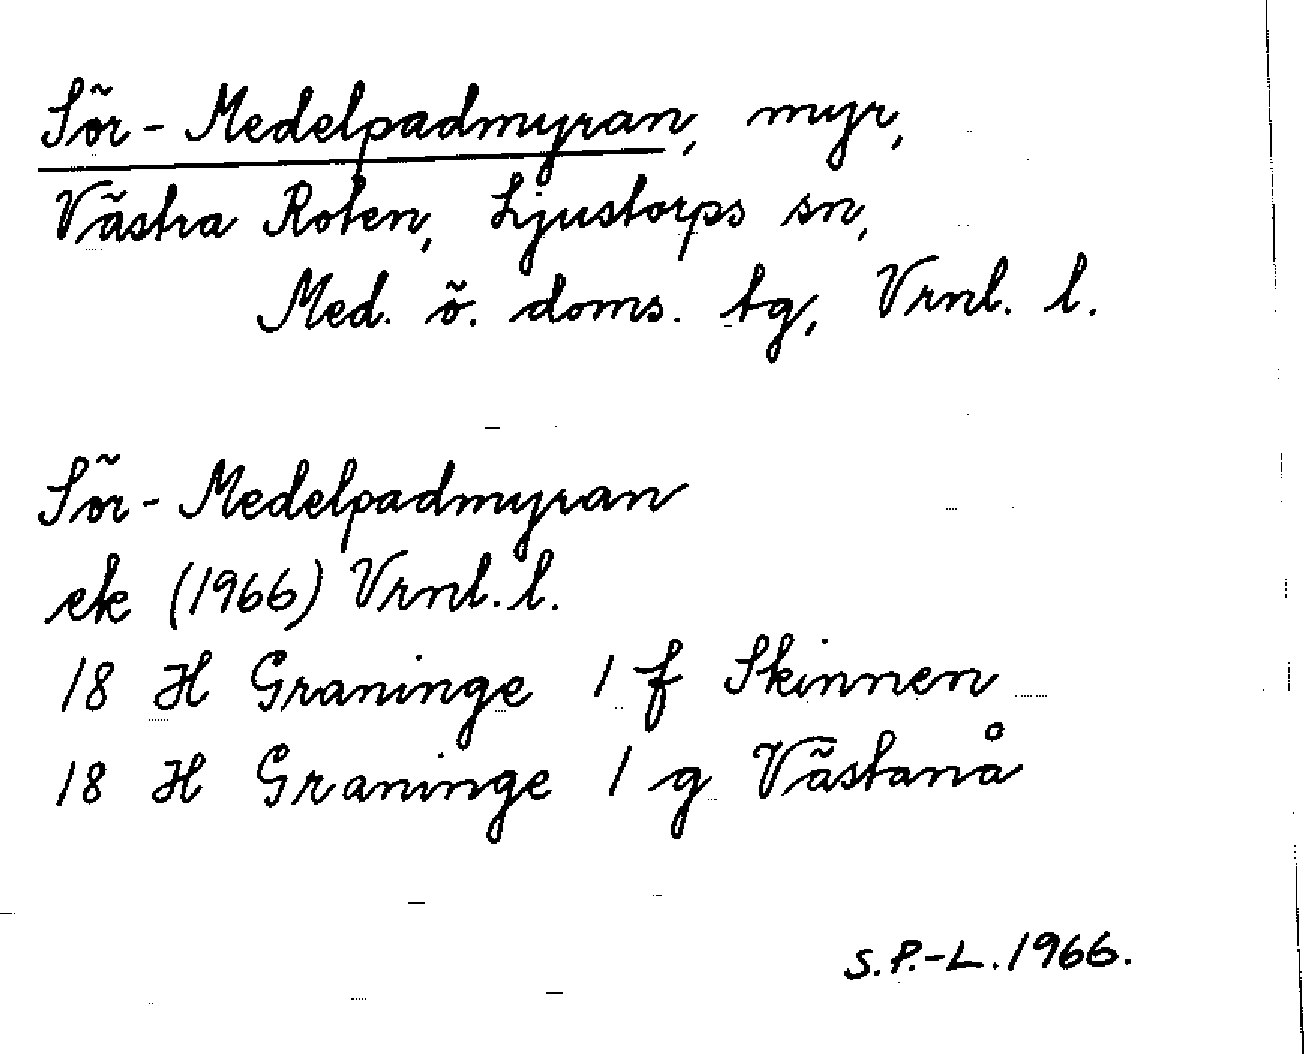 Sör-Medelpadmyran, myr,
Västra Roten, Ljustorps sn,
Med. ö. doms. tg, Vrnl. l.
Sör-Medelpadmyran
ek (1966) Vrnl. l.
18 H Graninge 1 f Skinnen
18 H Graninge 1 g Västanå
S.P.-L. 1966.